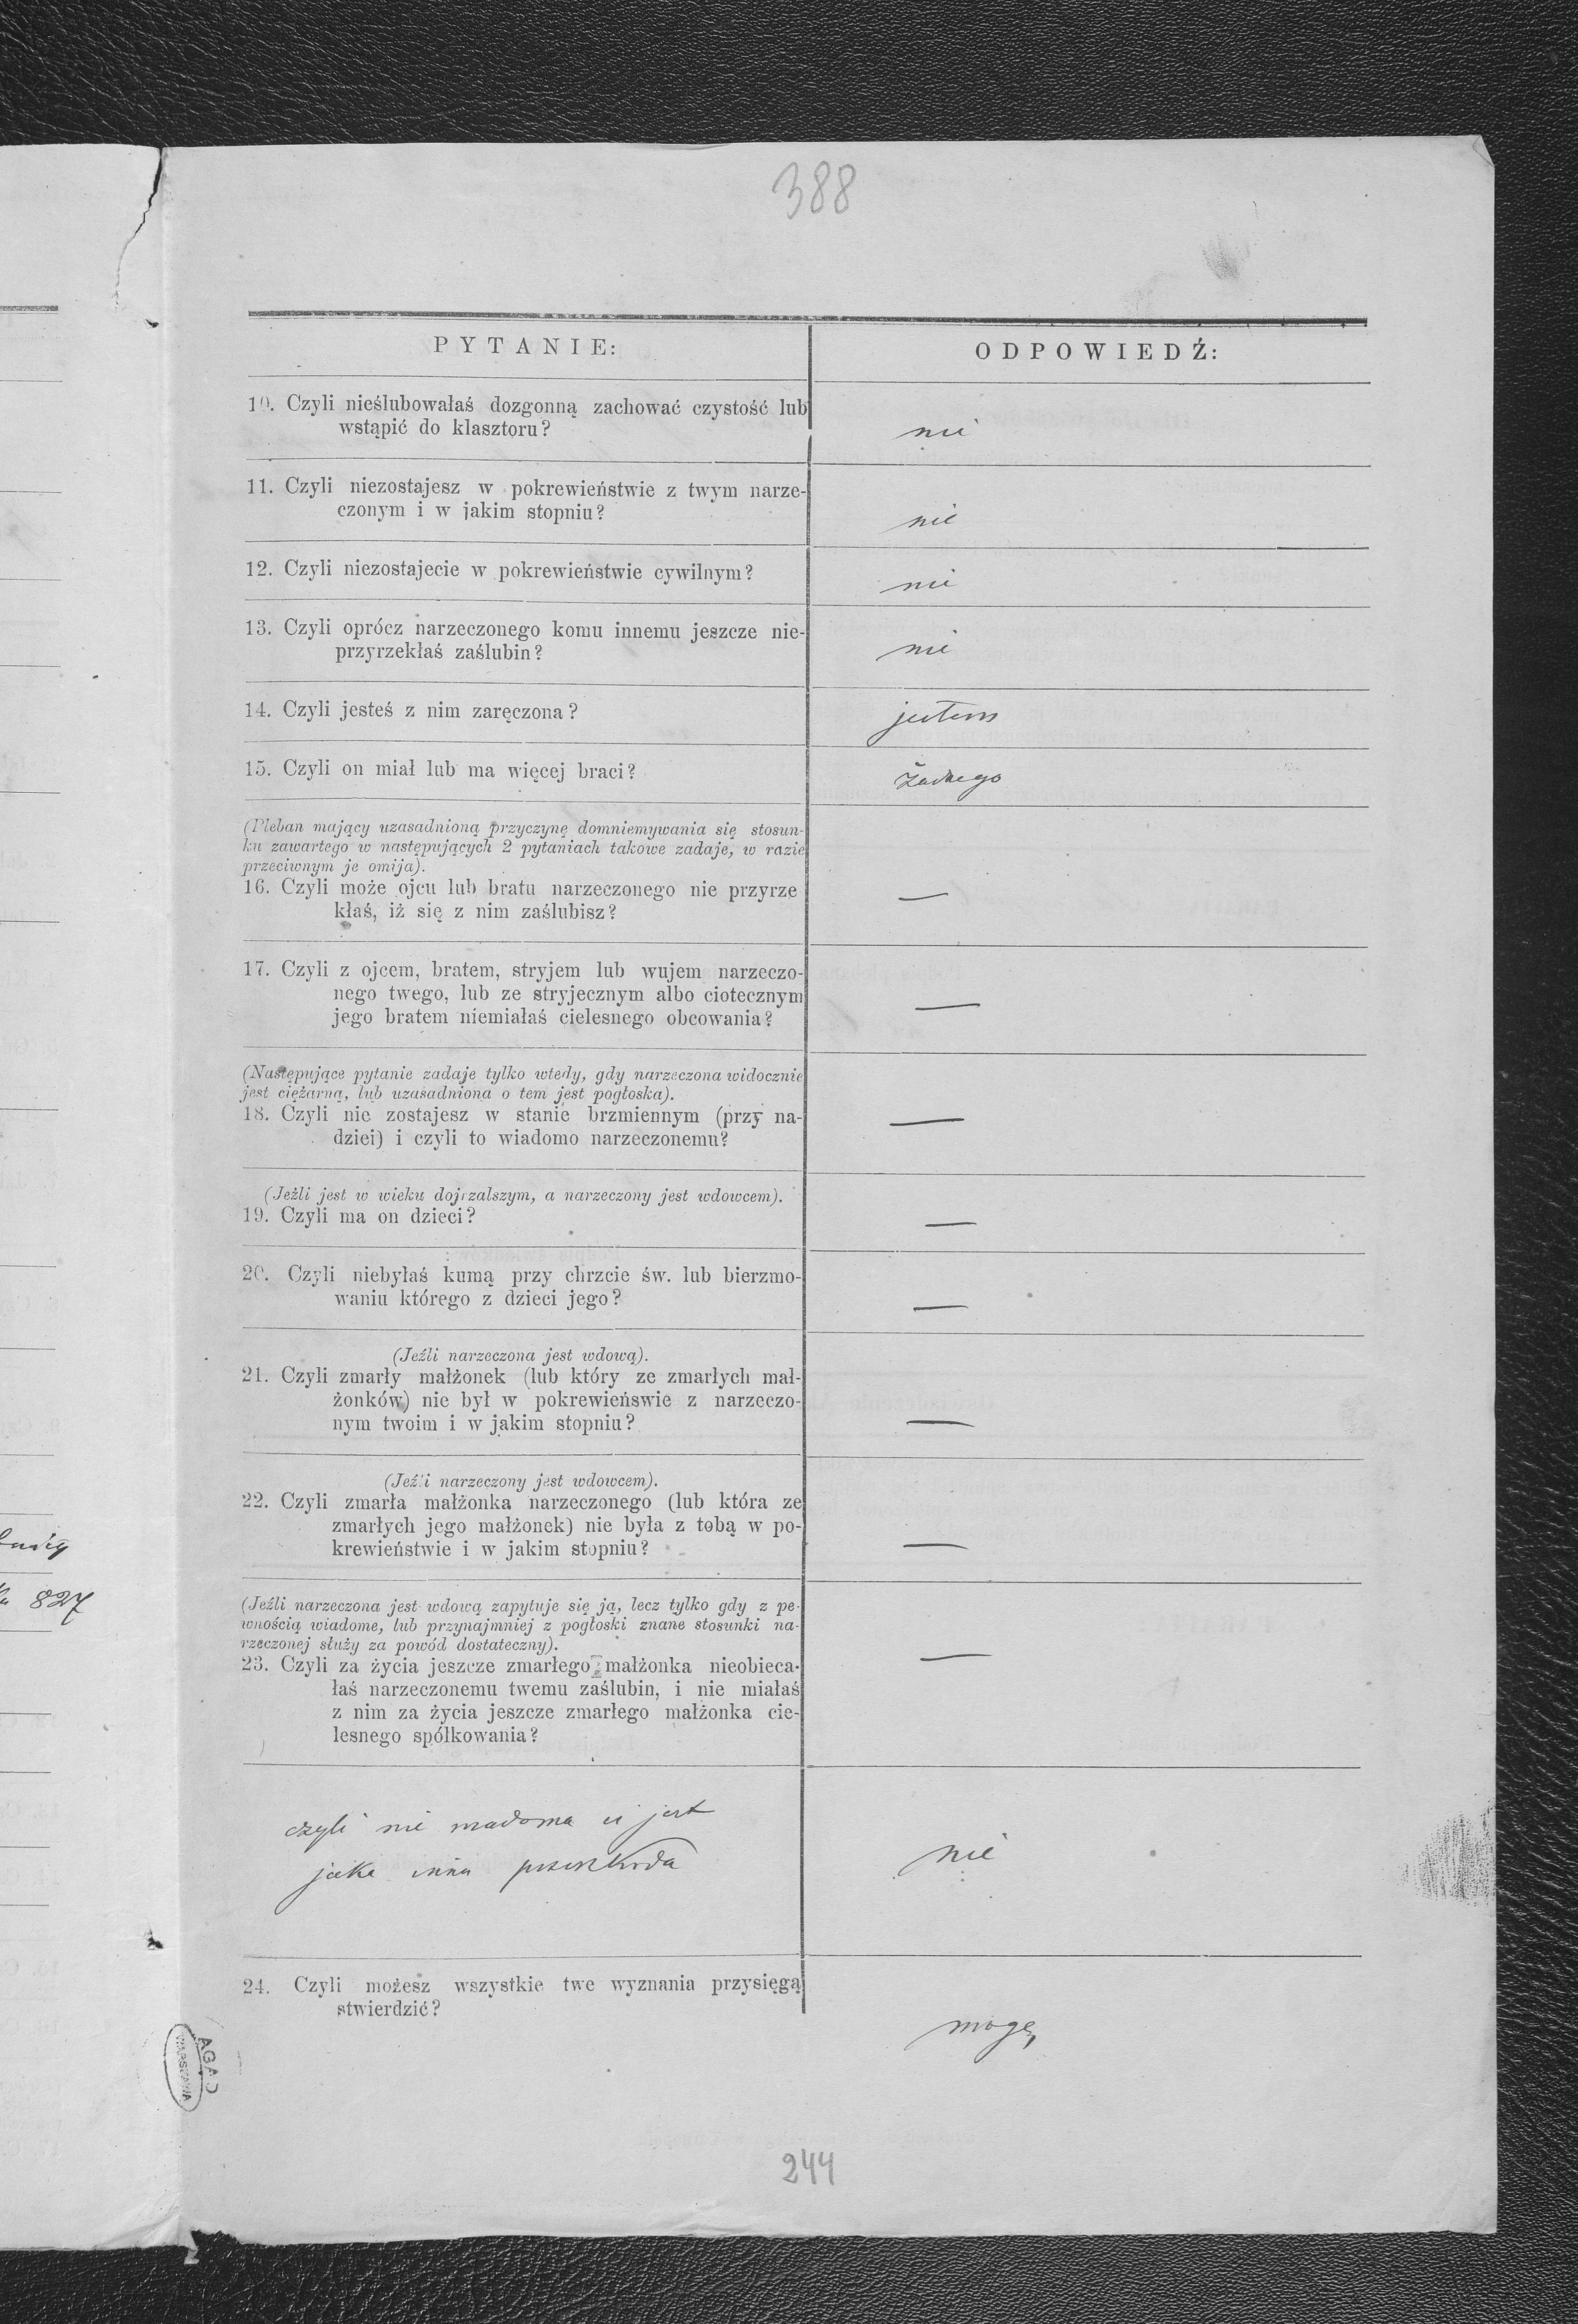 388
PYTANIE:
ODPOWIEDŹ:
10. Czyli nieślubowałaś dozgonną zachować czystość lub
wstąpić do klasztoru?
nie
11. Czyli niezostajesz w pokrewieństwie z twym narze-
czonym i w jakim stopniu?
nie
12. Czyli niezostajecie w pokrewieństwie cywilnym?
nie
13. Czyli oprócz narzeczonego komu innemu jeszcze nie-
przyrzekłaś zaślubin?
nie
14. Czyli jesteś z nim zaręczona?
jestem
15. Czyli on miał lub ma więcej braci?
żadnego
(Pleban mający uzasadnioną przyczynę domniemywania się stosun-
ku zawartego w następujących 2 pytaniach takowe zadaje, w razie
przeciwnym je omija).
16. Czyli może ojcu lub bratu narzeczonego nie przyrze
kłaś, iż się z nim zaślubisz?
—
17. Czyli z ojcem, bratem, stryjem lub wujem narzeczo-
nego twego, lub ze stryjecznym albo ciotecznym
jego bratem niemiałaś cielesnego obcowania?
—
(Następujące pytanie zadaje tylko wtedy, gdy narzeczona widocznie
jest ciężarną, lub uzasadniona o tem jest pogłoska).
18. Czyli nie zostajesz w stanie brzmiennym (przy na-
dziei) i czyli to wiadomo narzeczonemu?
—
(Jeżli jest w wieku dojrzalszym, a narzeczony jest wdowcem).
19. Czyli ma on dzieci?
—
20. Czyli niebyłaś kumą przy chrzcie św. lub bierzmo-
waniu którego z dzieci jego?
—
(Jeźli narzeczona jest wdową).
21. Czyli zmarły małżonek (lub który ze zmarłych mał-
żonków) nie był w pokrewieńswie z narzeczo-
nym twoim i w jakim stopniu?
—
(Jeźli narzeczony jest wdowcem).
22. Czyli zmarła małżonka narzeczonego (lub która ze
zmarłych jego małżonek) nie była z tobą w po-
krewieństwie i w jakim stopniu?
—
(Jeźli narzeczona jest wdową zapytuje się ją, lecz tylko gdy z pe-
wnością wiadome, lub przynajmniej z pogłoski znane stosunki na-
rzeczonej służy za powód dostateczny).
23. Czyli za życia jeszcze zmarłego małżonka nieobieca-
łaś narzeczonemu twemu zaślubin, i nie miałaś
z nim za życia jeszcze zmarłego małżonka cie-
lesnego spółkowania?
—
czyli nie wiadoma ci jest
jaka inna przeszkoda
nie
24. Czyli możesz wszystkie twe wyznania przysięgą
stwierdzić?
mogę
827
AGAD
WARSZAWA
244